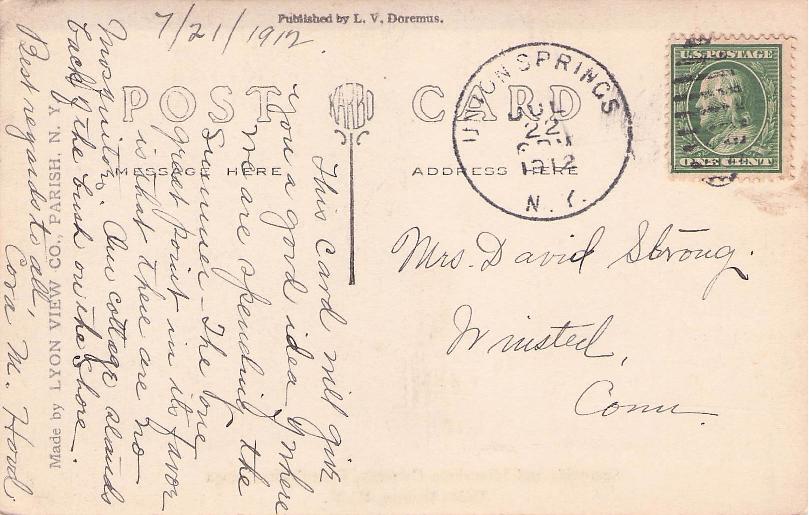 Published by L. V. Doremus.
7/21/1912.
POST CARD
KARBO
MESSAGE HERE
ADDRESS HERE
U.S. POSTAGE
ONE CENT
UNION SPRINGS
JUL
22
1912
N.Y.
This card will give
you a good idea of where
we are spending the
Summer - The one
great point in its favor
is that there are no
Mosquitoes. Our cottage stands
back of the bush on the Shore.
Best regards to all,
Cora M.
Made by LYON VIEW CO., PARISH, N. Y.
Mrs. David Strong.
Winsted,
Conn.